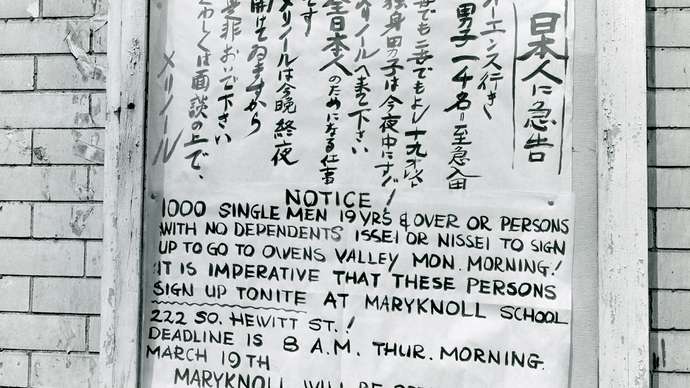 日本人に急告
オーエンス行き
男子一千名至急入用
世でも二世でもよし十九才以
独身男子は今夜中にすぐ
メリノールへ来て下さい
全日本人のためになる仕事
です
メリノールは今晩終夜
開けてゐますから
是非おいで下さい
くわしくは面談の上で、
メリノール
NOTICE!
1000 SINGLE MEN 19 YRS & OVER OR PERSONS
WITH NO DEPENDENTS ISSEI OR NISSEI TO SIGN
UP TO GO TO OWENS VALLEY MON. MORNING!
IT IS IMPERATIVE THAT THESE PERSONS
SIGN UP TONITE AT MARYKNOLL SCHOOL
222 SO. HEWITT ST.!
DEADLINE IS 8 A.M. THUR. MORNING.
MARCH 19TH
MARYKNOLL WILL BE